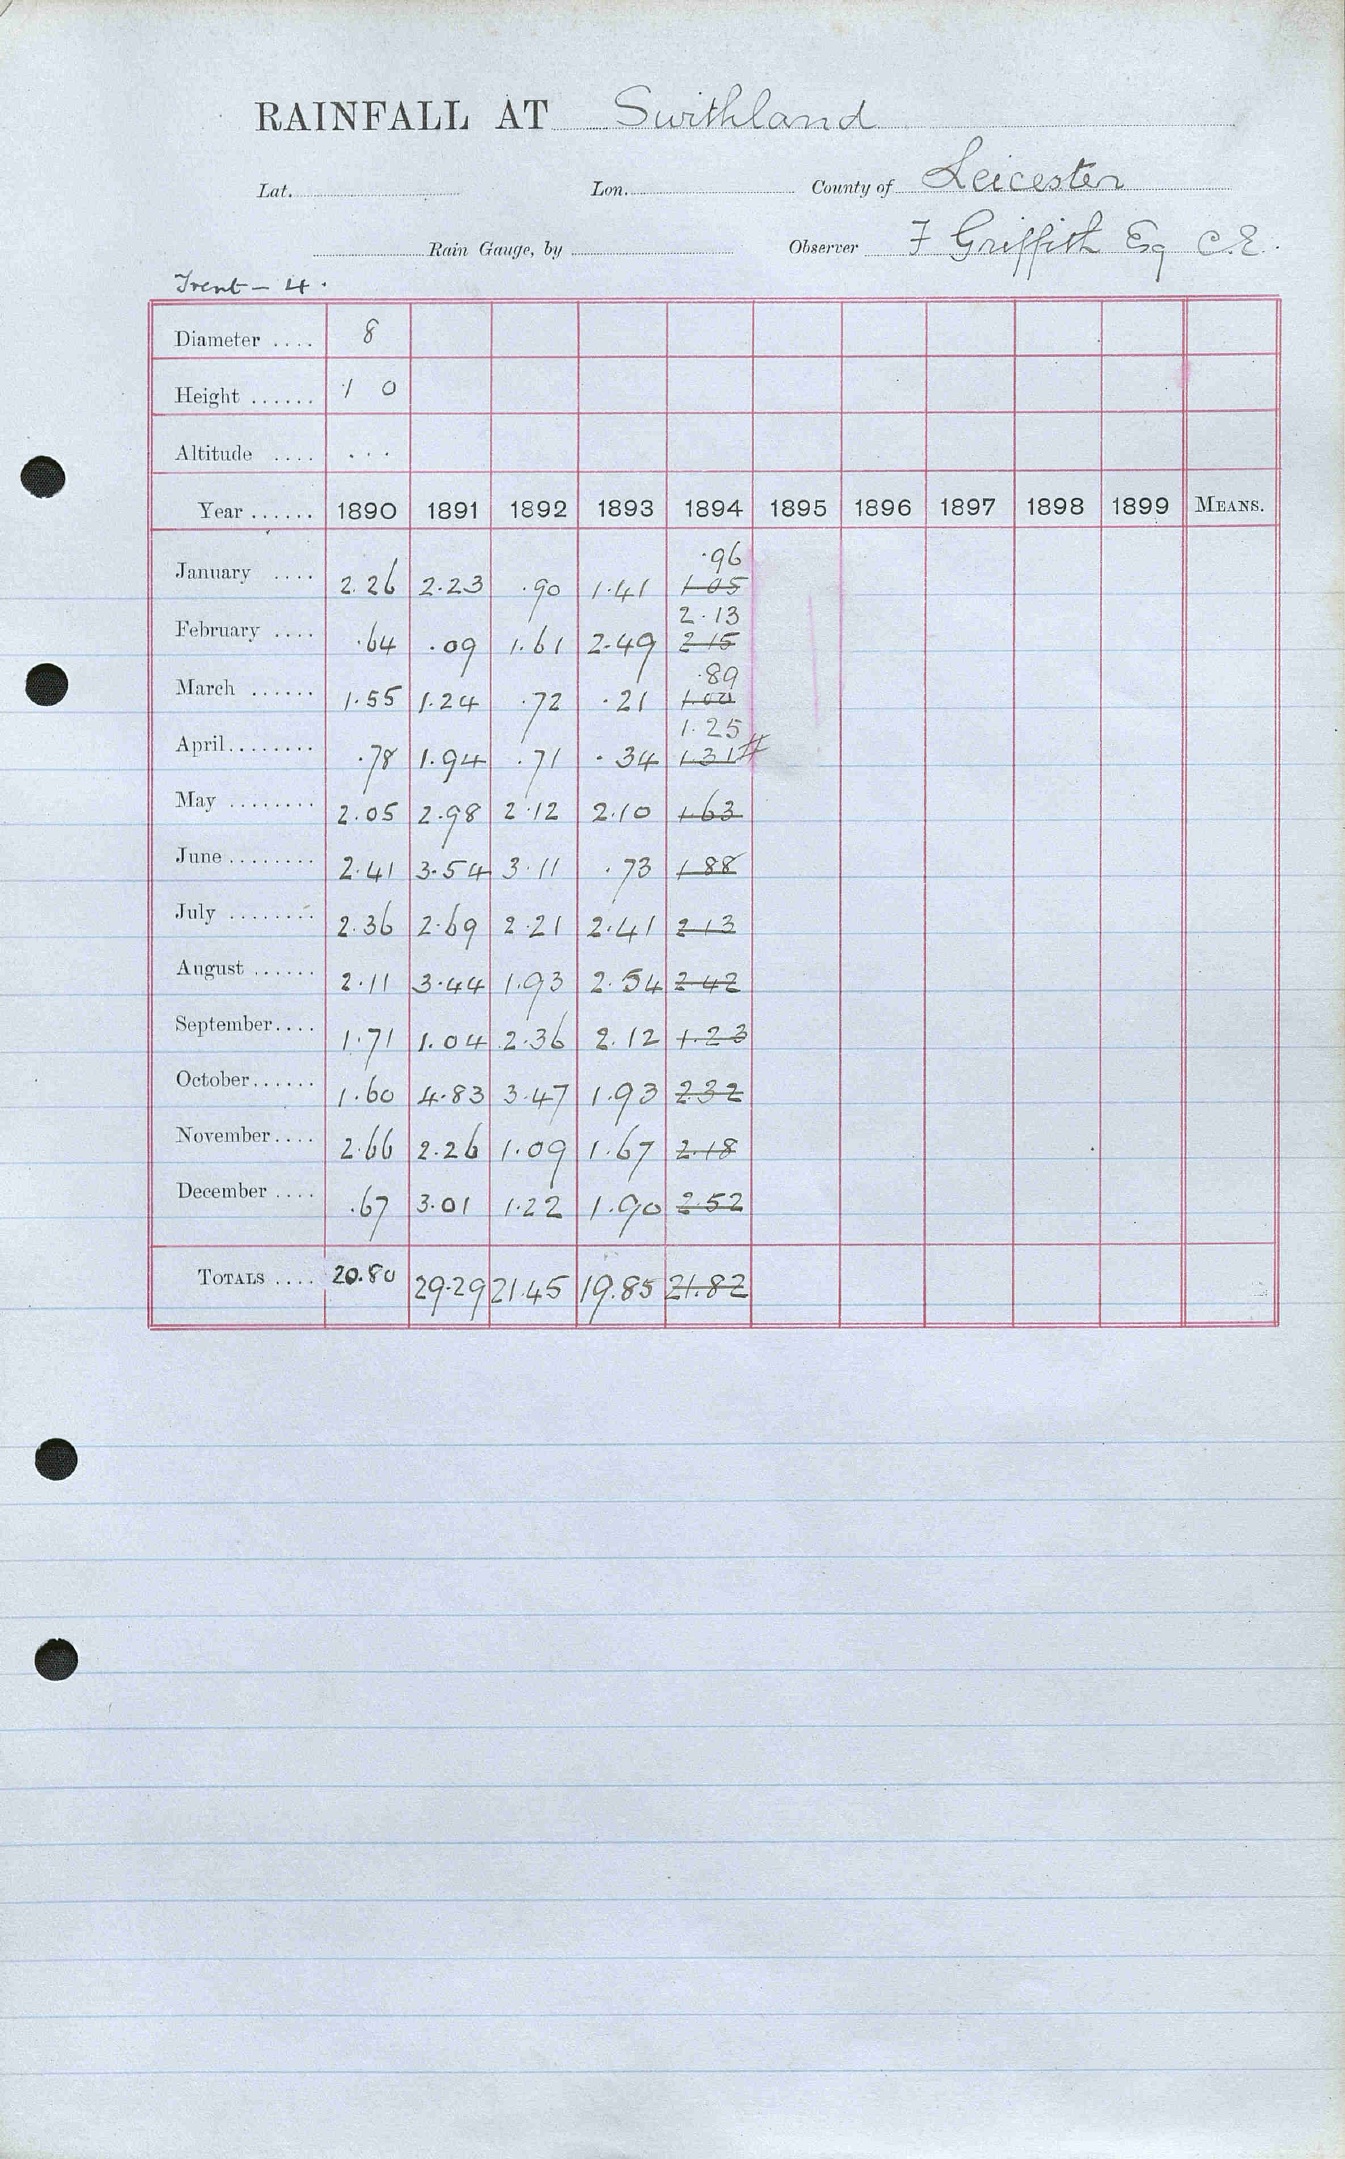 RAINFALL AT Swithland
Lat. Lon. County of Leicester
Rain Gauge, by Observer F Griffith Esq C.E.
Trent - 4.
Diameter .... 8
Height ...... 1 0
Altitude .... ...
Year ...... 1890 1891 1892 1893 1894 1895 1896 1897 1898 1899 MEANS.
.96
January .... 2.26 2.23 .90 1.41 1.05
2.13
February .... .64 .09 1.61 2.49 2.15
.89
March ...... 1.55 1.24 .72 .21 1.00
1.25
April ........ .78 1.94 .71 .34 1.31 #
May ........ 2.05 2.98 2.12 2.10 1.63
June ........ 2.41 3.54 3.11 .73 1.88
July ........ 2.36 2.69 2.21 2.41 2.13
August ...... 2.11 3.44 1.93 2.54 2.42
September .... 1.71 1.04 2.36 2.12 1.23
October ...... 1.60 4.83 3.47 1.93 2.32
November .... 2.66 2.26 1.09 1.67 2.18
December .... .67 3.01 1.22 1.90 2.52
TOTALS .... 20.80 29.29 21.45 19.85 21.82